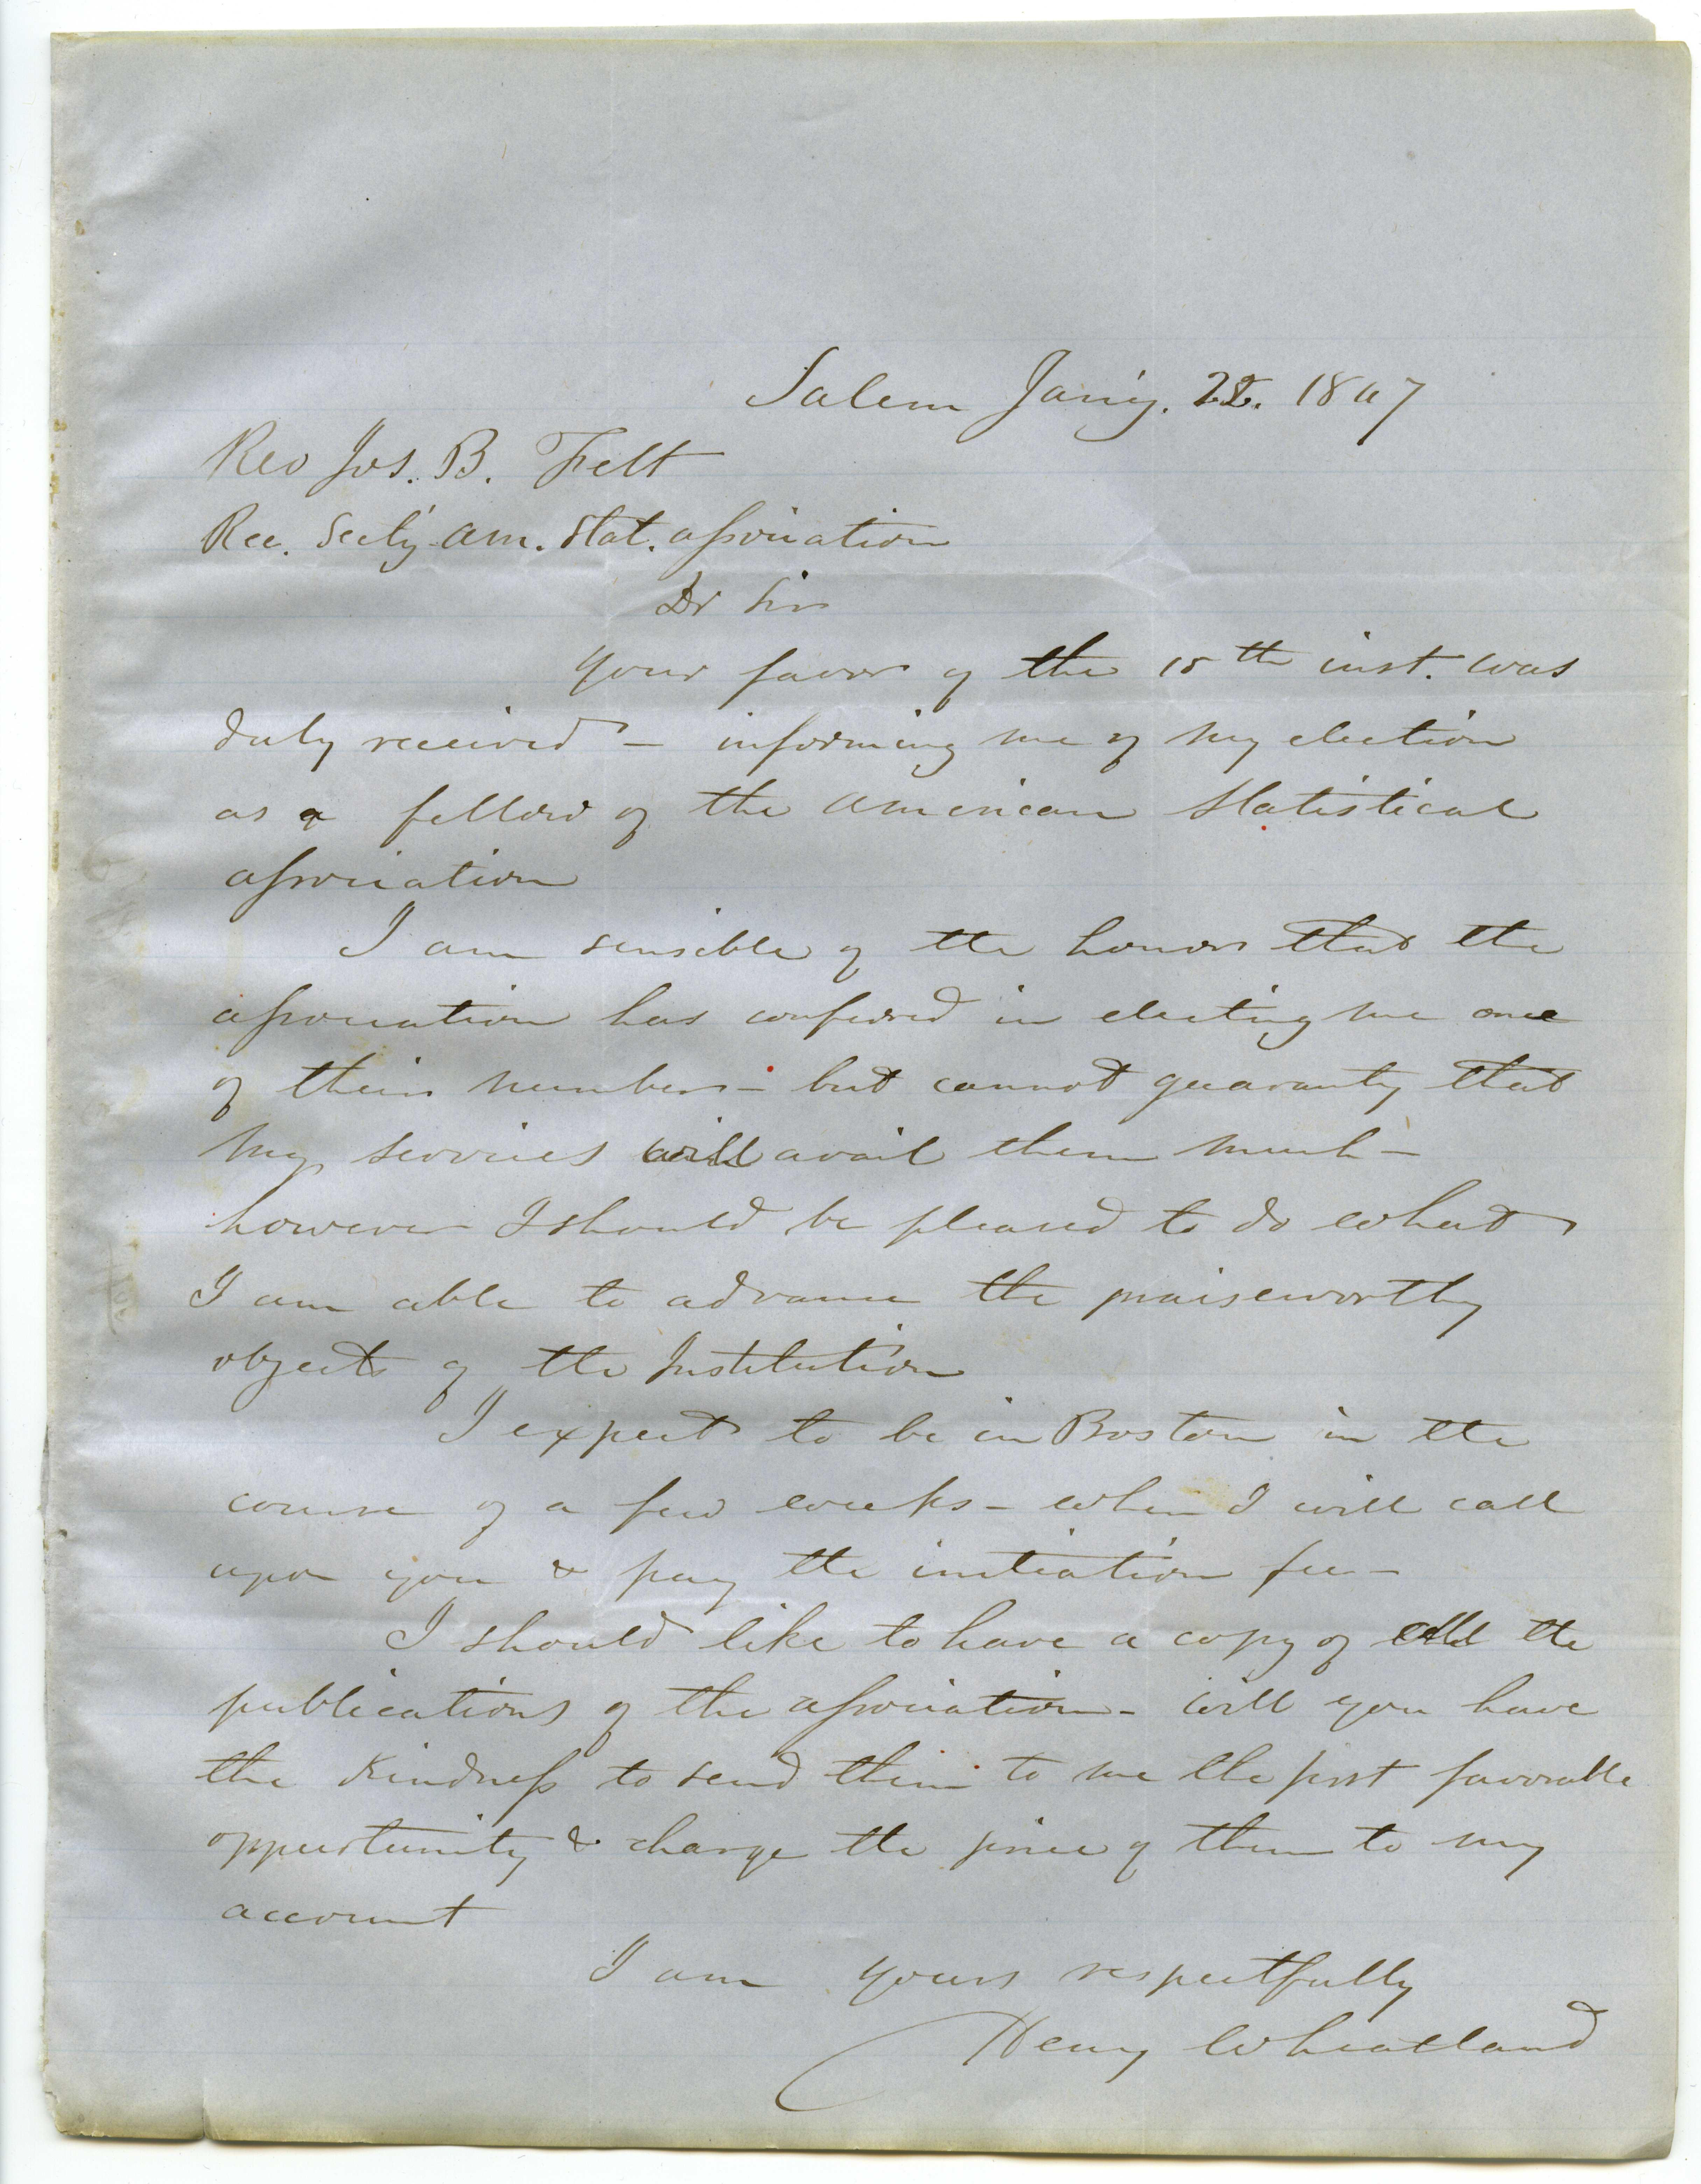 Salem Jan'y. 22. 1847
Rev Jos. B. Felt
Rec. Sec'ty Am. Stat. Association
Dr Sir
Your favor of the 15th inst. was
duly received — informing me of my election
as a fellow of the American Statistical
Association
I am sensible of the honor that the
association has conferred in electing me one
of their number — but cannot guaranty that
my services will avail them much —
however I should be pleased to do what
I am able to advance the praiseworthy
objects of the Institution
I expect to be in Boston in the
course of a few weeks — when I will call
upon you & pay the initiation fee —
I should like to have a copy of all the
publications of the association — will you have
the kindness to send them to me the first favorable
oppurtunity & charge the price of them to my
account
I am yours respectfully
Henry Wheatland